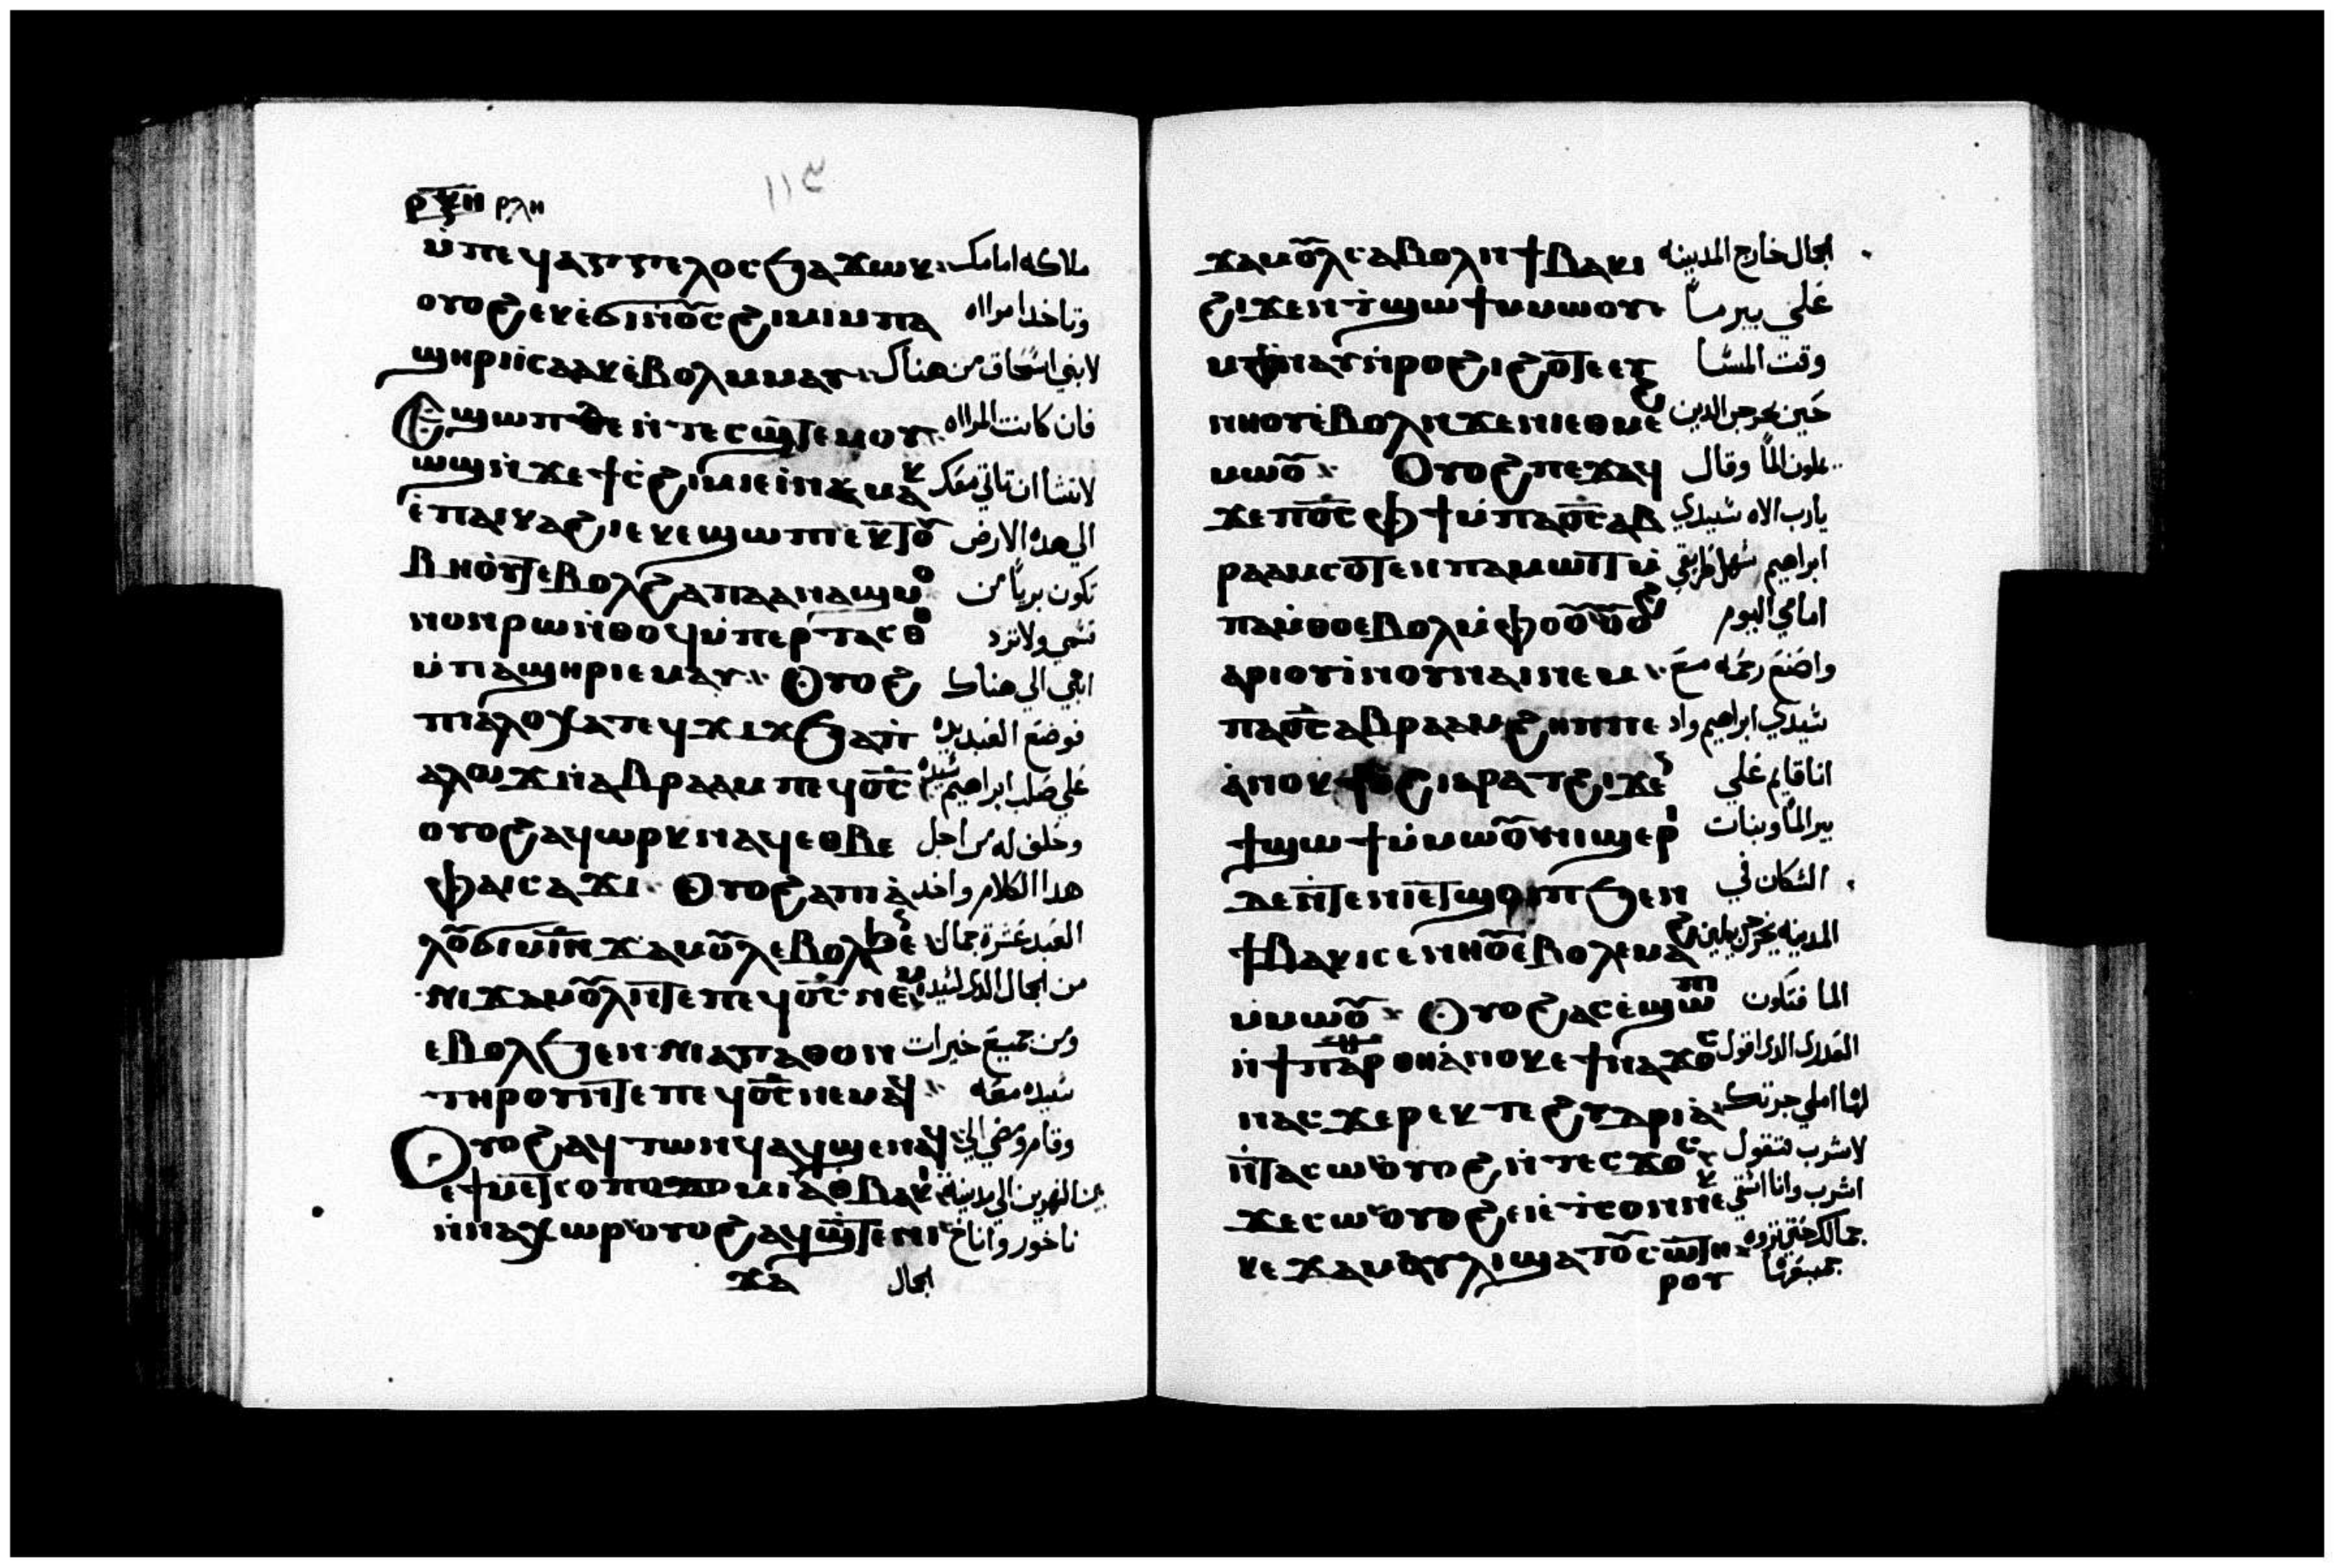 ⲣⲝⲏ ⲣⲗⲏ
١١٤
ⲙ̀ⲡⲉϥⲁⲅⲅⲉⲗⲟⲥϧⲁϫⲱⲕ ملاكه امامك
ⲟⲩⲟϩⲉⲕⲉ̀ϭⲓⲛ̀ⲟ̅ⲥϩⲓⲙⲓⲙⲡⲁ وتاخد امرااه
ϣⲏⲣⲓⲓ̀ⲥⲁⲁⲕⲉ̀ⲃⲟⲗⲙⲙⲁⲩ لابني اسحاق من هناك
Ⲉϣⲱⲡⲇⲉⲛ̀ⲧⲉⲥϣ̅ⲧⲉⲙⲟⲩ فان كانت المرااه
ⲱϣⲛ̀ϫⲉϯⲥ̀ϩⲓⲙⲓⲉⲓ̀ⲛⲉⲙⲁⲕ لاتشا ان تاتي معك
ⲉ̀ⲡⲁⲓⲕⲁϩⲓⲉⲕⲉϣⲱⲡⲓⲉⲕⲧⲟ̅ الي هده الارض
ⲃⲏⲟⲩⲧⲉⲃⲟⲗϩⲁⲡⲁⲁⲛⲁϣⲙ̀ⲟ تكون بريا من
ⲙⲟⲛⲣⲱⲛ̀ⲑⲟϥⲙ̀ⲡⲉⲣⲧⲁⲥⲑⲟ قسمي ولاترد
ⲙ̀ⲡⲁϣⲏⲣⲓⲉⲙⲁⲩ Ⲟⲩⲟϩ ابني الي هناك
ⲡⲓⲁ̀ⲗⲟⲩⲭⲁⲡⲉϥϫⲓϫϧⲁⲡ̀ فوضع العبد يده
ⲁⲗⲟϫⲛ̀ⲁⲃⲣⲁⲁⲙⲡⲉϥⲟ̅ⲥ علي صلب ابراهيم سيده
ⲟⲩⲟϩⲁϥⲱⲣⲕⲛⲁϥⲉⲑⲃⲉ وحلف له من اجل
ⲫⲁⲓⲥⲁϫⲓ Ⲟⲩⲟϩⲁⲡⲓⲁ̀ هدا الكلام واخد
ⲗⲟ̅ϭⲓⲙ̅ⲓ̅ⲛϫⲁⲙⲟ̅ⲗⲉⲃⲟⲗϧⲉ̀ العبد عشرة جمال
ⲛⲓϫⲁⲙⲟ̅ⲗⲛ̀ⲧⲉⲡⲉϥⲟ̅ⲥⲛⲉⲙ من الجمال الدي لسيده
ⲉⲃⲟⲗϧⲉⲛⲛⲓⲁⲅⲁⲑⲟⲛ ومن جميع خيرات
ⲧⲏⲣⲟⲩⲛ̀ⲧⲉⲡⲉϥⲟ̅ⲥⲛⲉⲙⲁϥ سيده معه
Ⲟⲩⲟϩⲁϥⲧⲱⲛϥⲁϥϣⲉⲛⲁϥ وقام ومضي الي
ⲉ̀ϯⲙⲉⲥⲟⲡⲟⲧⲁⲙⲓⲁⲑⲃⲁⲕⲓ بين النهرين الي مدينة
ⲛ̀ⲛⲁⲭⲱⲣⲟⲩⲟϩⲁϥϣ̅ⲧⲉⲛⲓ ناخور واناخ
ϫⲁ الجمال
ϫⲁⲙⲟ̅ⲗⲥⲁⲃⲟⲗⲛ̀ϯⲃⲁⲕⲓ الجال خارج المدينه
ϩⲓϫⲉⲛϯϣⲱϯⲙⲙⲱⲟⲩ علي بير ما
ⲙⲫⲛⲁⲩⲛ̀ⲣⲟⲩϩⲓϩⲟ̅ⲧⲉⲉⲧ وقت المسا
ⲛⲏⲟⲩⲉ̀ⲃⲟⲗⲛϫⲉⲛⲓⲉⲑⲙⲉϩ حين يخرجن الدين
ⲙⲱ̅ⲟ Ⲟⲩⲟϩⲡⲉϫⲁϥ يملون الما وقال
ϫⲉⲡⲟ̅ⲥⲫϯⲙ̀ⲡⲁⲟ̅ⲥⲁⲃ يارب الاه سيدي
ⲣⲁⲁⲙⲥⲟ̅ⲧⲉⲛⲡⲁⲙⲱⲓⲧⲙ̀ ابراهيم سهل طريقي
ⲡⲁⲙ̀ⲑⲟⲉⲃⲟⲗⲙ̀ⲫⲟ̅ⲟⲩ̅ⲟϩ امامي اليوم
ⲁⲣⲓⲟⲩⲓ̀ⲛⲟⲩⲛⲁⲓⲛⲉⲙ واصنع رحمه مع
ⲡⲁⲟ̅ⲥⲁⲃⲣⲁⲁⲙϩⲏⲡⲡⲉ سيدي ابراهيم واد
ⲁ̀ⲛⲟⲕϯⲟϩⲓⲉⲣⲁⲧϩⲓϫⲉ انا قايم علي
ϯϣⲱϯⲙ̀ⲙⲱ̅ⲟⲛⲓϣⲉⲣⲓ بير الما وبنات
ⲇⲉⲛ̀ⲧⲉⲛⲓⲉⲧϣⲟⲡϧⲉⲛ السكان في
ϯⲃⲁⲕⲓⲥⲉⲛⲏⲟ̅ⲉⲃⲟⲗⲉⲙⲁϩ المدينه يخرجن يملين
ⲙ̀ⲙⲱ̅ⲟ Ⲟⲩⲟϩⲁⲥⲉ̀ϣⲱⲡ الما فتكون
ⲛ̀ϯⲡⲁⲣⲑⲏⲁ̀ⲛⲟⲕⲉϯⲛⲁϫⲟⲥ العدرى الدي اقول
ⲛⲁⲥϫⲉⲣⲉⲕⲧⲉϩⲩⲇⲣⲓⲁ̀ لها املي جرتك
ⲛ̀ⲧⲁⲥⲱⲟⲩⲟϩⲛ̀ⲧⲉⲥϫⲟⲥ لاشرب فتقول
ϫⲉⲥⲱⲟⲩⲟϩⲉⲓⲉⲧⲥⲟⲛⲛⲉ اشرب وانا اسقي
ⲕⲉϫⲁⲙⲁⲩⲗⲓϣⲁⲧⲟ̅ⲥⲱ̅ⲧⲏ جمالك حتي تروه
ⲣⲟⲩ جميعها